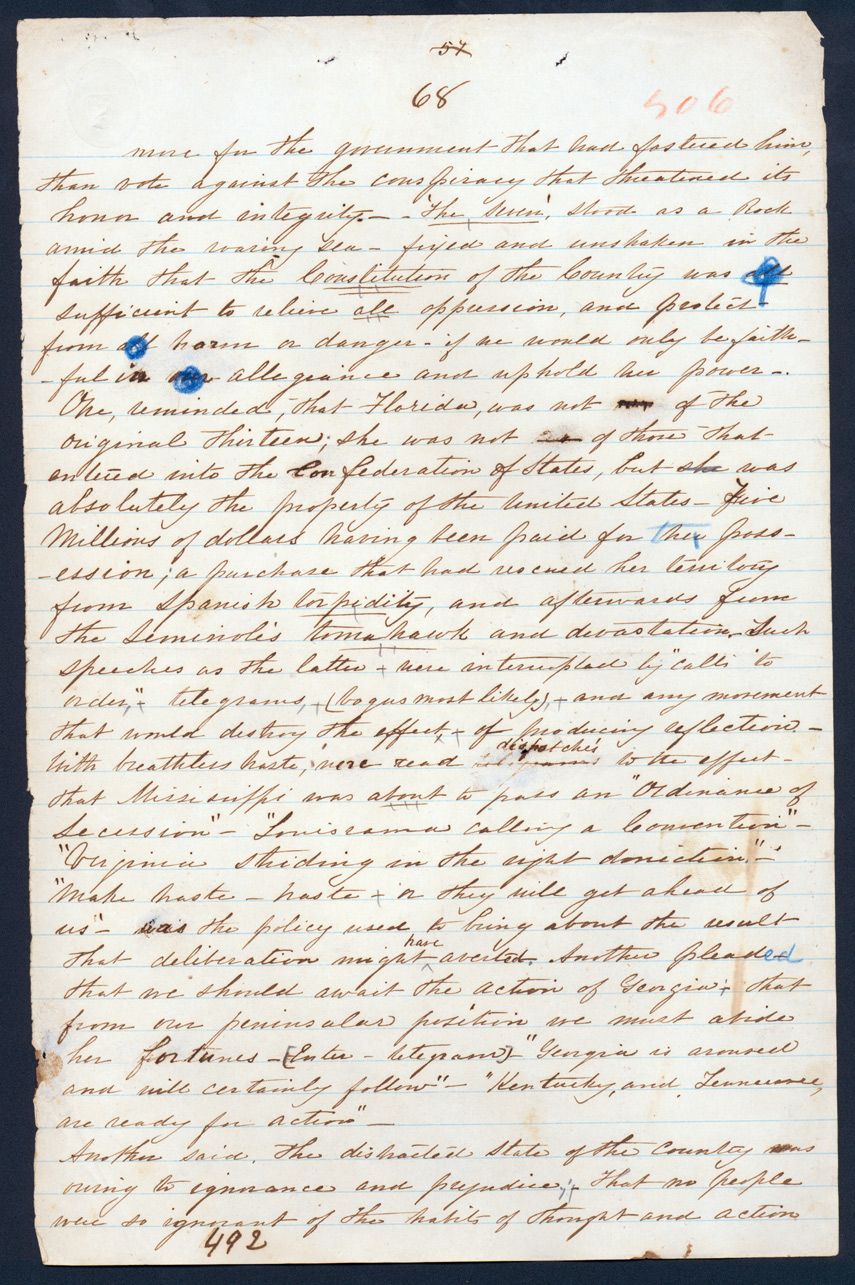 57
68
506
more for the government that had fostered him,
than vote against the conspiracy that threatened its
honor and integrity. — "The Seven", stood as a Rock
amid the roaring sea — fixed and unshaken in the
faith that the Constitution of the Country was all
sufficient to relieve all oppression, and protect
from all harm or danger - if we would only be faith-
-ful in our allegiance and uphold her power —.
One, reminded, that Florida, was not of the
original thirteen; she was not of those that
entered into the Confederation of States, but she was
absolutely the property of the United States — Five
Millions of dollars having been paid for the poss-
-ession; a purchase that had rescued her territory
from Spanish torpidity, and afterwards from
the Seminole's tomahawk and devastation — Such
speeches as the latter were interrupted by "calls to
order," - telegrams, (bogus most likely), and any movement
that would destroy the effect, of producing reflection. —
With breathless haste, were read dispatches to the effect —
that Mississippi was about to pass an "Ordinance of
Secession" — "Louisiana calling a Convention" —
"Virginia striding in the right direction." —
"Make haste — haste or they will get ahead of
us" — was the policy used to bring about the result
that deliberation might have averted. Another pleaded
that we should await the action of Georgia; that
from our peninsular position we must abide
her fortunes — (Enter - telegram) - "Georgia is aroused
and will certainly follow" — "Kentucky, and Tennessee,
are ready for action" —
Another said, the distracted State of the country was
owing to ignorance and prejudice; that no people
were so ignorant of the habits of thought and action
492